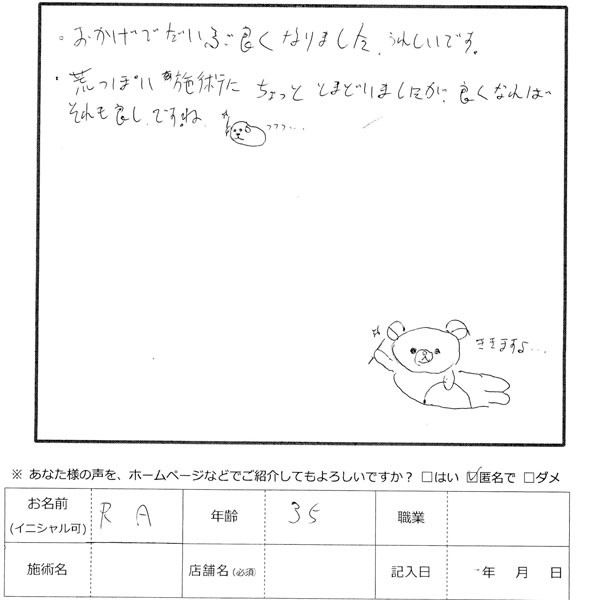 。おかげでだいぶ良くなりました。うれしいです。
・荒っぽい施術に ちょっと とまどいましたが、良くなれば
それも良し、ですね
フフフ・・・
ききますよ・・・
※ あなた様の声を、ホームページなどでご紹介してもよろしいですか？ □はい ☑匿名で □ダメ
お名前 (イニシャル可) R A 年齢 35 職業
施術名 店舗名(必須) 記入日 年 月 日